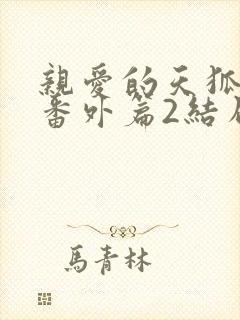 親愛的天狐
番外篇2結
馬青林